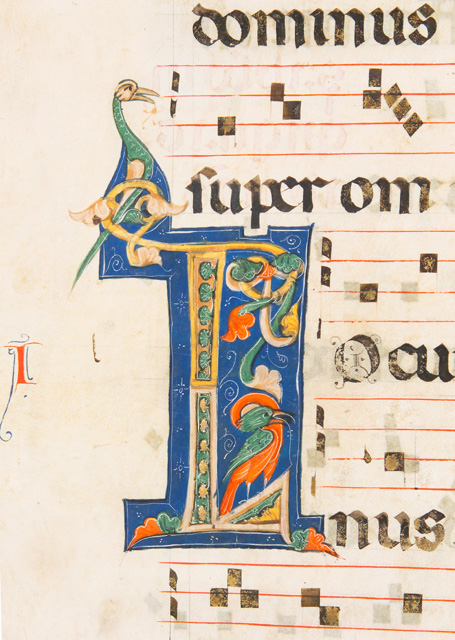 dominus
super om
I IOcu
nus